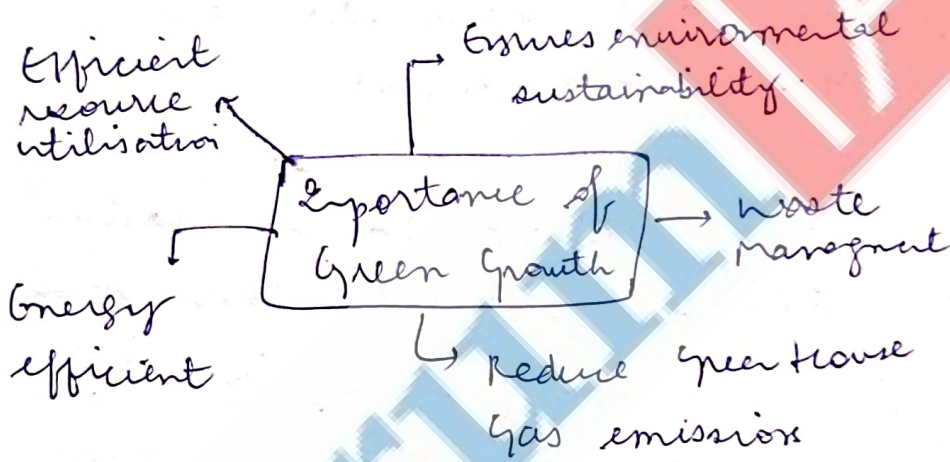 Efficient
resource
utilisation
Ensures environmental
sustainability.
Importance of
Green Growth
Waste
Managment
Energy
efficient
Reduce Green House
Gas emissions